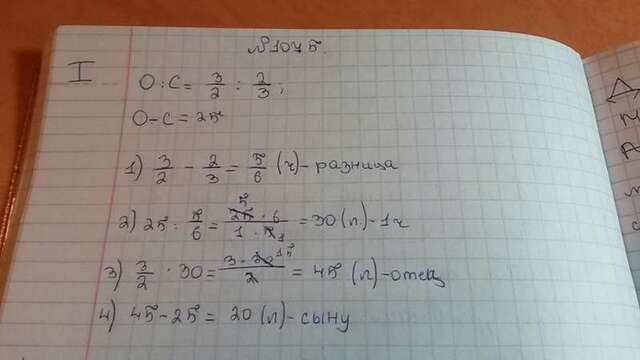 №1075.
I
О:С= 3/2 : 2/3;
О-С = 25
1) 3/2 - 2/3 = 5/6 (ч)- разница
2) 25 : 5/6 = 25·6/1·5 = 30 (л)-1ч
3) 3/2 · 30 = 3·30/2 = 45 (л)-отец
4) 45-25 = 20 (л)-сыну